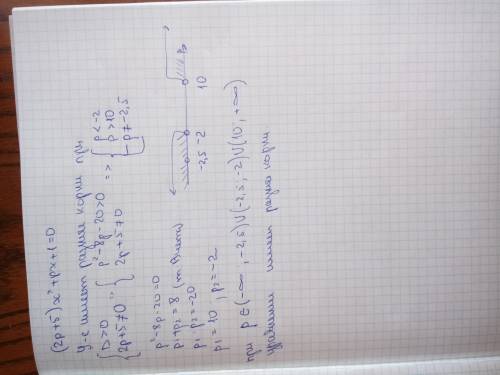 (2p+5)x²+px+1=0
У-е имеет разные корни при
{ D>0
{ 2p+5≠0
=
{ p²-8p-20>0
{ 2p+5≠0
=>
{ [ p<-2
{ [ p>10
{ p≠-2,5
p²-8p-20=0
p₁+p₂=8 (т. Виета)
p₁·p₂=-20
p₁=10, p₂=-2
-2,5 -2 10 p
при p∈(-∞; -2,5)∪(-2,5; -2)∪(10; +∞)
уравнение имеет разные корни